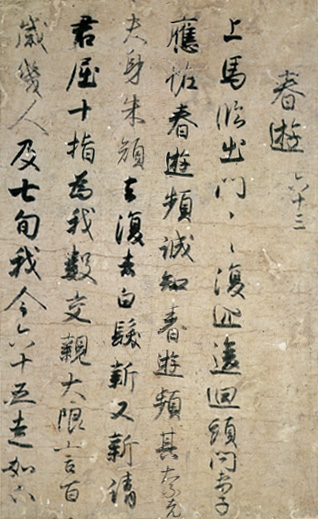 春遊 六十三
上馬臨出門〻〻復逡巡迴頭問妻子
應怪春遊頻誠知春遊頻其奈老
大身朱顏去復去白髮新又新請
君屈十指為我數交親大限言百
歲幾人及七旬我今六十五走如下